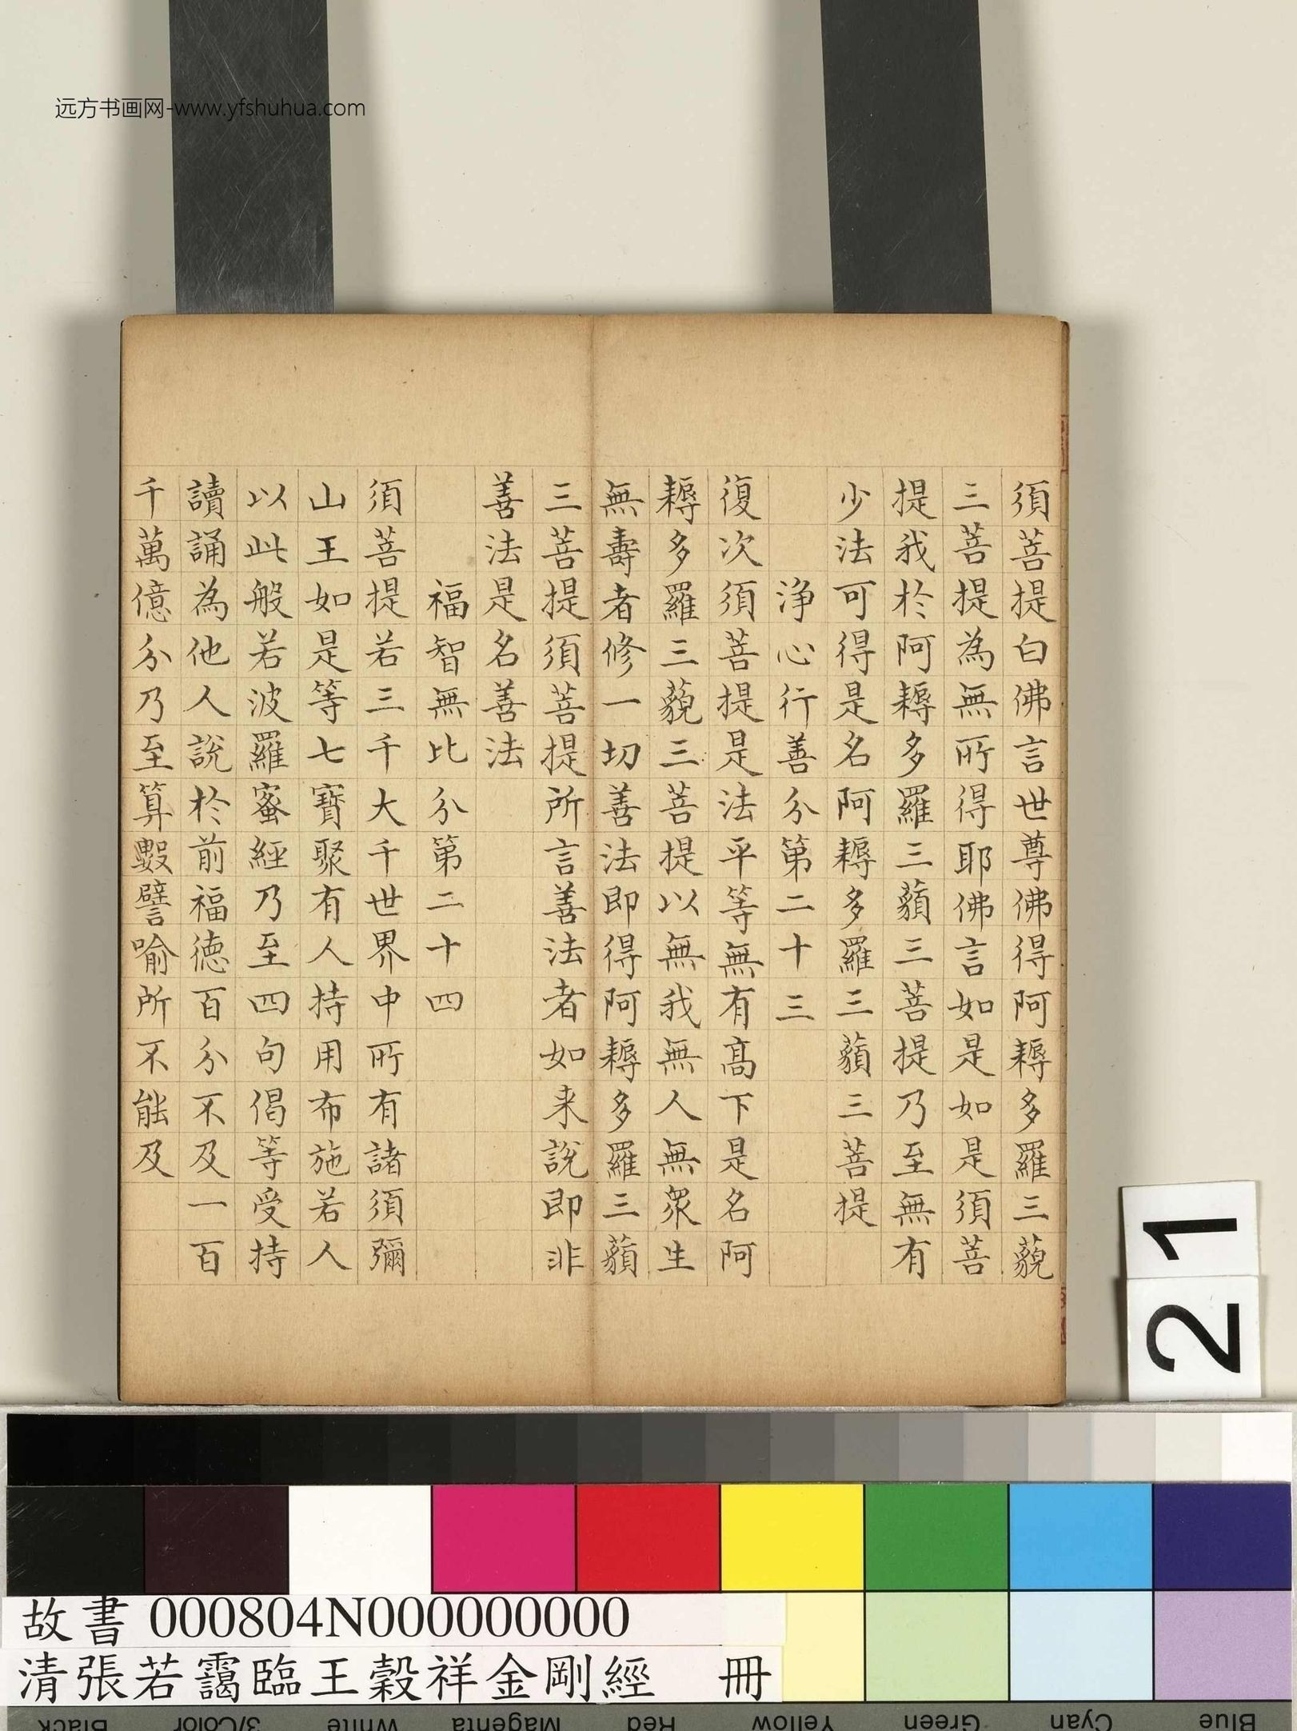 远方书画网-www.yfshuhua.com
須菩提白佛言世尊佛得阿耨多羅三藐
三菩提為無所得耶佛言如是如是須菩
提我於阿耨多羅三藐三菩提乃至無有
少法可得是名阿耨多羅三藐三菩提
淨心行善分第二十三
復次須菩提是法平等無有高下是名阿
耨多羅三藐三菩提以無我無人無衆生
無壽者修一切善法即得阿耨多羅三藐
三菩提須菩提所言善法者如来說即非
善法是名善法
福智無比分第二十四
須菩提若三千大千世界中所有諸須彌
山王如是等七寶聚有人持用布施若人
以此般若波羅蜜經乃至四句偈等受持
讀誦為他人說於前福德百分不及一百
千萬億分乃至算數譬喻所不能及
21
故書 000804N000000000
清張若靄臨王穀祥金剛經 冊
Black 3/Color White Magenta Red Yellow Green Cyan Blue